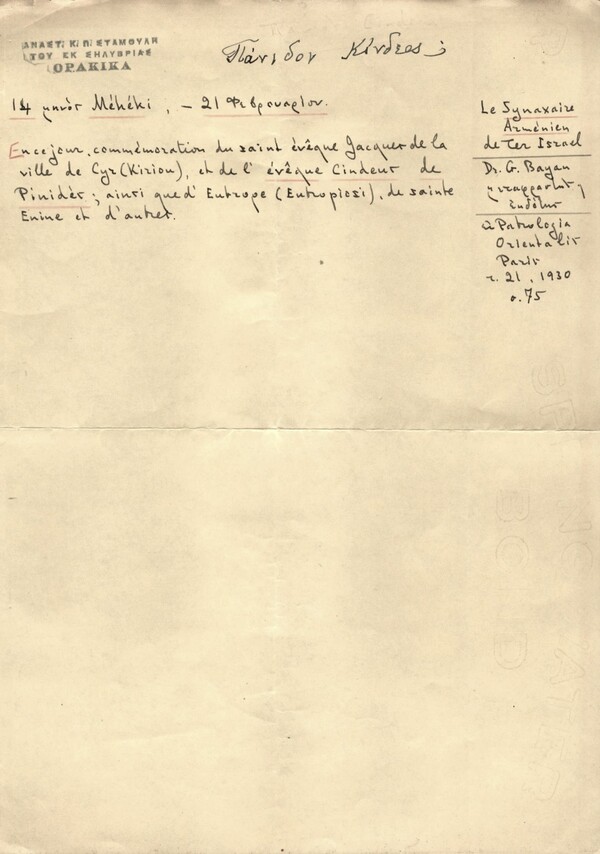 ΑΝΑΣΤ. Κ. Π. ΣΤΑΜΟΥΛΗ
ΤΟΥ ΕΚ ΣΗΛΥΒΡΙΑΣ
ΘΡΑΚΙΚΑ
Πανίδου
14 μηνὸς Méhéki, – 21 Φεβρουαρίου.
En ce jour, commémoration du saint évêque Jacques de la
ville de Cyr (Kiriou), et de l'évêque Cindeus de
Pinidès; ainsi que d'Eutrope (Eutropiosi), de sainte
Enine et d'autres.
Le Synaxaire
Arménien
de Ter Israel
Dr. G. Bayan
Patrologia
Orientalis
Paris
τ. 21, 1930
σ. 75